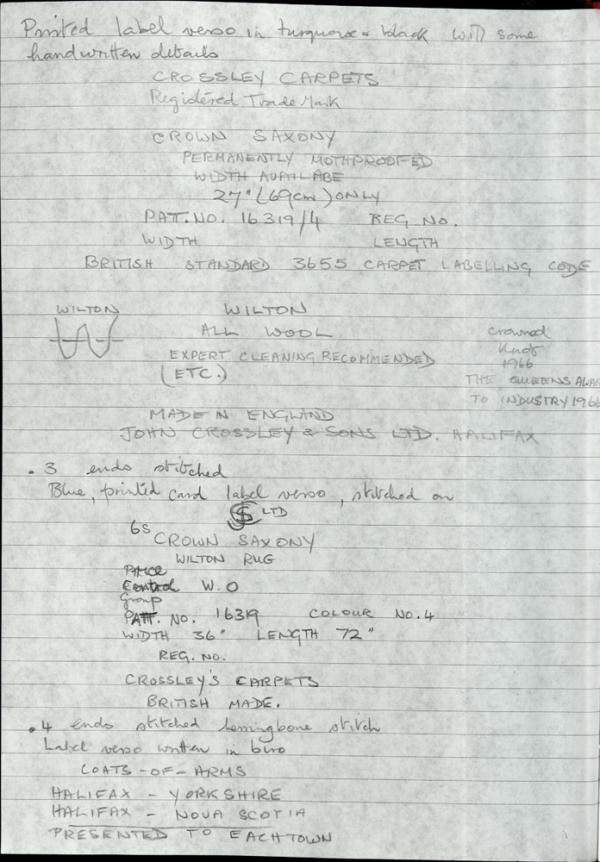 Printed label verso in turquoise & black with some
handwritten details
CROSSLEY CARPETS
Registered Trade Mark
CROWN SAXONY
PERMANENTLY MOTHPROOFED
WIDTH AVAILABE
27" (69cm) ONLY
PAT. NO. 16319/4 REG NO.
WIDTH LENGTH
BRITISH STANDARD 3655 CARPET LABELLING CODE
WILTON WILTON
ALL WOOL
crowned
EXPERT CLEANING RECOMMENDED
Knot
(ETC.)
1966
THE QUEENS AWA
TO INDUSTRY 1966
MADE IN ENGLAND
JOHN CROSSLEY & SONS LTD. HALIFAX
.3 ends stitched
Blue, printed card label verso, stitched on
LTD
6s CROWN SAXONY
WILTON RUG
PRICE
Control W.O
Group
PATT. NO. 16319 COLOUR NO. 4
WIDTH 36" LENGTH 72"
REG. NO.
CROSSLEY'S CARPETS
BRITISH MADE.
.4 ends stitched herringbone stitch
Label verso written in biro
COATS-OF-ARMS
HALIFAX - YORKSHIRE
HALIFAX - NOVA SCOTIA
PRESENTED TO EACH TOWN